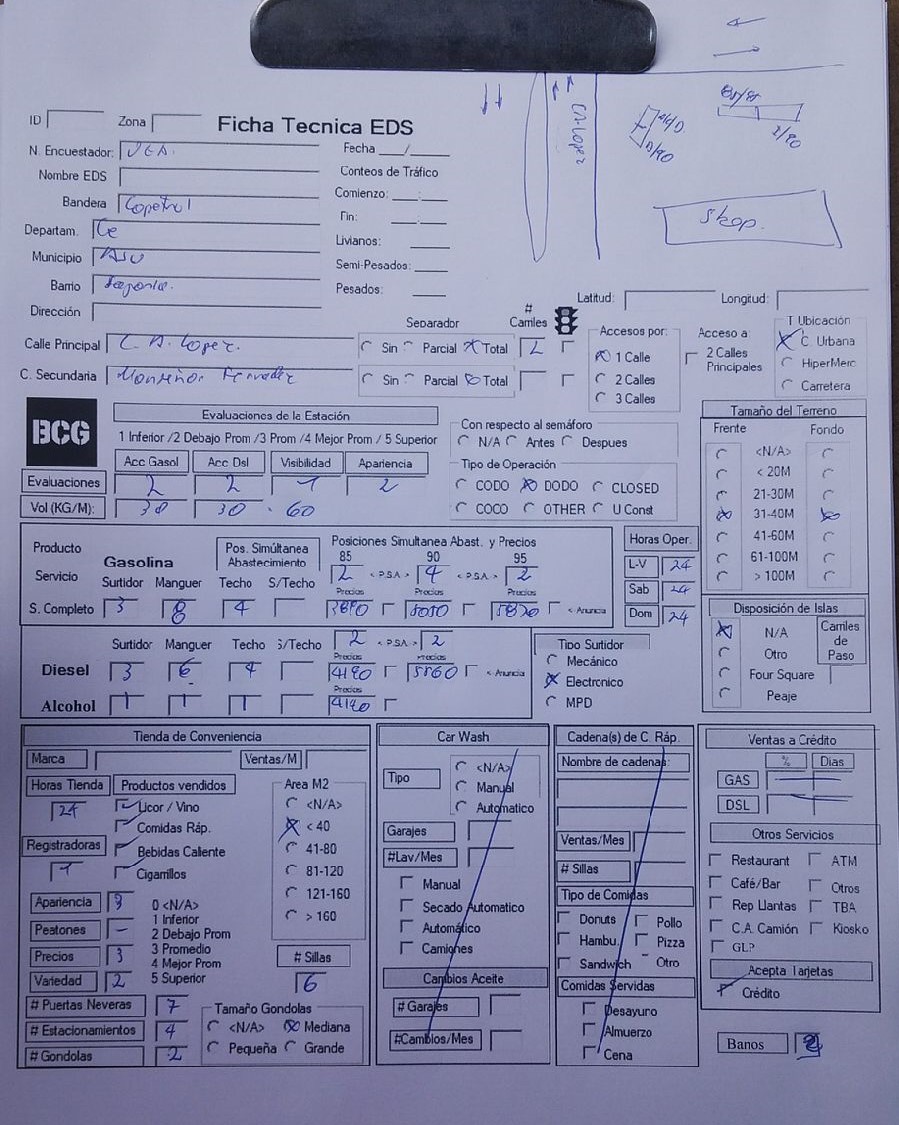 ID Zona Ficha Tecnica EDS
N. Encuestador:
Nombre EDS
Bandera Copetrol
Departam. Ce
Municipio Asu
Barrio Sajonia.
Dirección
Fecha / 
Conteos de Tráfico
Comienzo: :
Fin: :
Livianos:
Semi-Pesados:
Pesados:
CA. Lopez
85/95
2/90
D/90
Shop.
Latitud: Longitud:
Calle Principal C. A. Lopez.
C. Secundaria Monseñor
Separador # Carriles
Sin Parcial Total 2
Sin Parcial Total
Accesos por:
1 Calle
2 Calles
3 Calles
Acceso a:
2 Calles
Principales
T Ubicación
C. Urbana
HiperMerc
Carretera
BCG
Evaluaciones de la Estación
1 Inferior /2 Debajo Prom /3 Prom /4 Mejor Prom / 5 Superior
Acc Gasol Acc Dsl Visibilidad Apariencia
Evaluaciones 2 2 1 2
Vol (KG/M): 30 30 . 60
Con respecto al semáforo
N/A Antes Despues
Tipo de Operación
CODO DODO CLOSED
COCO OTHER U Const
Tamaño del Terreno
Frente Fondo
<N/A>
< 20M
21-30M
31-40M
41-60M
61-100M
> 100M
Producto
Servicio
Gasolina
Pos. Simúltanea
Abastecimiento
Posiciones Simultanea Abast. y Precios
85 90 95
2 < P.S.A > 4 < P.S.A > 2
Surtidor Manguer Techo S/Techo Precios Precios Precios
S. Completo 3 8 4 < Anuncia
Horas Oper.
L-V 24
Sab 24
Dom 24
Surtidor Manguer Techo S/Techo 2 < P.S.A > 2
Precios Precios
Diesel 3 6 4 4190 5860 < Anuncia
Precios
Alcohol 1 1 1 4140
Tipo Surtidor
Mecánico
Electronico
MPD
Disposición de Islas
N/A
Otro
Four Square
Peaje
Carriles
de
Paso
Tienda de Conveniencia
Marca Ventas/M
Horas Tienda Productos vendidos
24
Licor / Vino
Comidas Ráp.
Bebidas Caliente
Cigarrillos
Registradoras
1
Area M2
<N/A>
< 40
41-80
81-120
121-160
> 160
Apariencia 3
Peatones -
Precios 3
Variedad 2
0 <N/A>
1 Inferior
2 Debajo Prom
3 Promedio
4 Mejor Prom
5 Superior
# Sillas
6
# Puertas Neveras 7
# Estacionamientos 4
# Gondolas 2
Tamaño Gondolas
<N/A> Mediana
Pequeña Grande
Car Wash
Tipo
<N/A>
Manual
Automatico
Garajes
#Lav/Mes
Manual
Secado Automatico
Automático
Camiones
Cambios Aceite
# Garajes
#Cambios/Mes
Cadena(s) de C. Ráp.
Nombre de cadenas:
Ventas/Mes
# Sillas
Tipo de Comidas
Donuts Pollo
Hambu. Pizza
Sandwich Otro
Comidas Servidas
Desayuro
Almuerzo
Cena
Ventas a Crédito
% Dias
GAS
DSL
Otros Servicios
Restaurant ATM
Café/Bar Otros
Rep Llantas TBA
C.A. Camión Kiosko
GLP
Acepta Tarjetas
Crédito
Banos